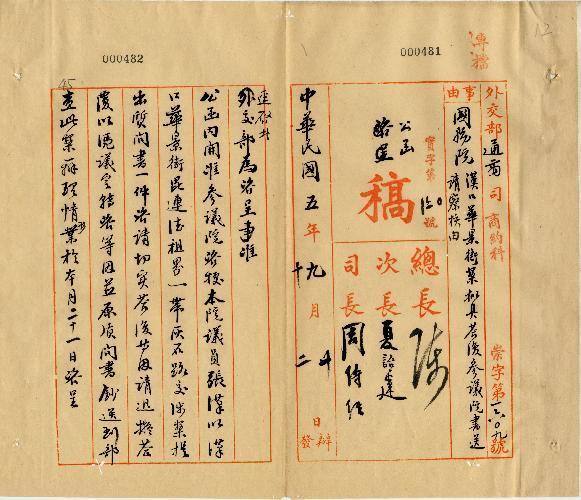 12
傳檔
000481
外交部通商司 商約科 崇字第一六〇九號
事由
國務院 漢口華景街案擬具答復參議院書送
請察核由
公函
咨呈
稿
總長 陳
次長 夏詒霆
司長 周傳經
中華民國五年九月
十二日
辦
發
000482
45
逕啟者
外交部為咨呈事准
公函內開准參議院咨據本院議員張漢以漢
口華景街毘連法租界一帶灰石路交涉案提
出質問書一件咨請切實答復等因請迅擬答
復以憑議定轉咨等因並原質問書鈔送到部
查此案辦理情形業於本月二十一日咨呈